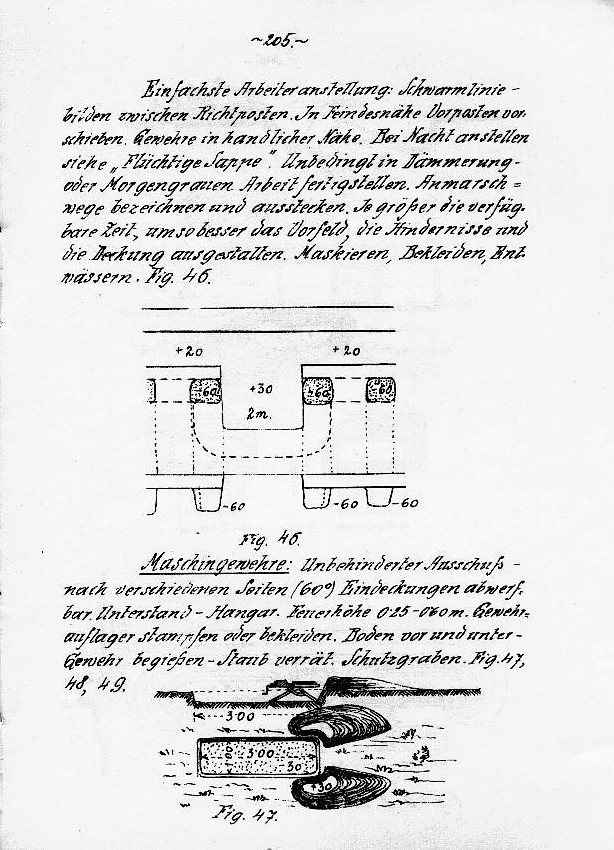 ~205.~
Einfachste Arbeiteranstellung: Schwarmlinie -
bilden zwischen Richtposten. In Feindesnähe Vorposten vor-
schieben. Gewehre in handlicher Nähe. Bei Nacht anstellen
siehe „Flüchtige Sappe". Unbedingt in Dämmerung-
oder Morgengrauen Arbeit fertigstellen. Anmarsch =
wege bezeichnen und ausstecken. Je größer die verfüg-
bare Zeit, umso besser das Vorfeld, die Hindernisse und
die Deckung ausgestalten. Maskieren, Bekleiden, Ent-
wässern. Fig. 46.
+20 +20
-60 +30 -60 -60
2m.
-60 -60 -60
Fig. 46.
Maschingewehre: Unbehinderter Ausschuß -
nach verschiedenen Seiten (60°) Eindeckungen abwerf-
bar. Unterstand - Hangar. Feuerhöhe 0·25-0·60m. Gewehr=
auflager stampfen oder bekleiden. Boden vor und unter-
Gewehr begießen - Staub verrät. Schutzgraben. Fig. 47,
48, 49.
3·00
1·00 3·00
30 +30
Fig. 47.